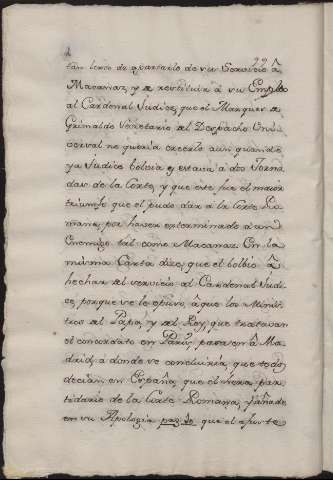 tan lexos de apartarlo de su Servicio â
Macanaz, y a restituir â su Empleo
al Cardenal Judice, que el Marques de
Grimaldo Secretario del Despacho Uni-
versal no queria creerlo aun quando
ya Judice bolvia y estava â dos Jorna
das de la Corte, y que este fue el maior
triunfo que el pudo dar â la Corte Ro
mana, por haver exterminado â un
Enemigo tal como Macanaz. En la
misma Carta dize, que el bolbio â
hechar del servicio al Cardenal Judi-
ce, porque se le opuso, â que los Minis-
tros del Papa, y del Rey, que tratavan
el concordato en Paris, pasasen â Ma
drid, â donde se concluiria, que todos
decian en España, que el hera par-
tidario de la Corte Romana, y añade
en su Apologia que el aparte